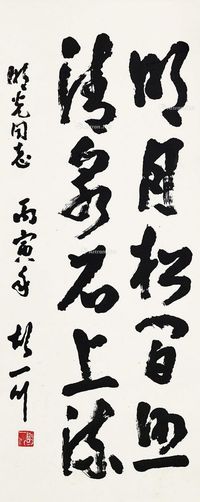 明月松间照
清泉石上流
晓光同志
丙寅年 胡一川